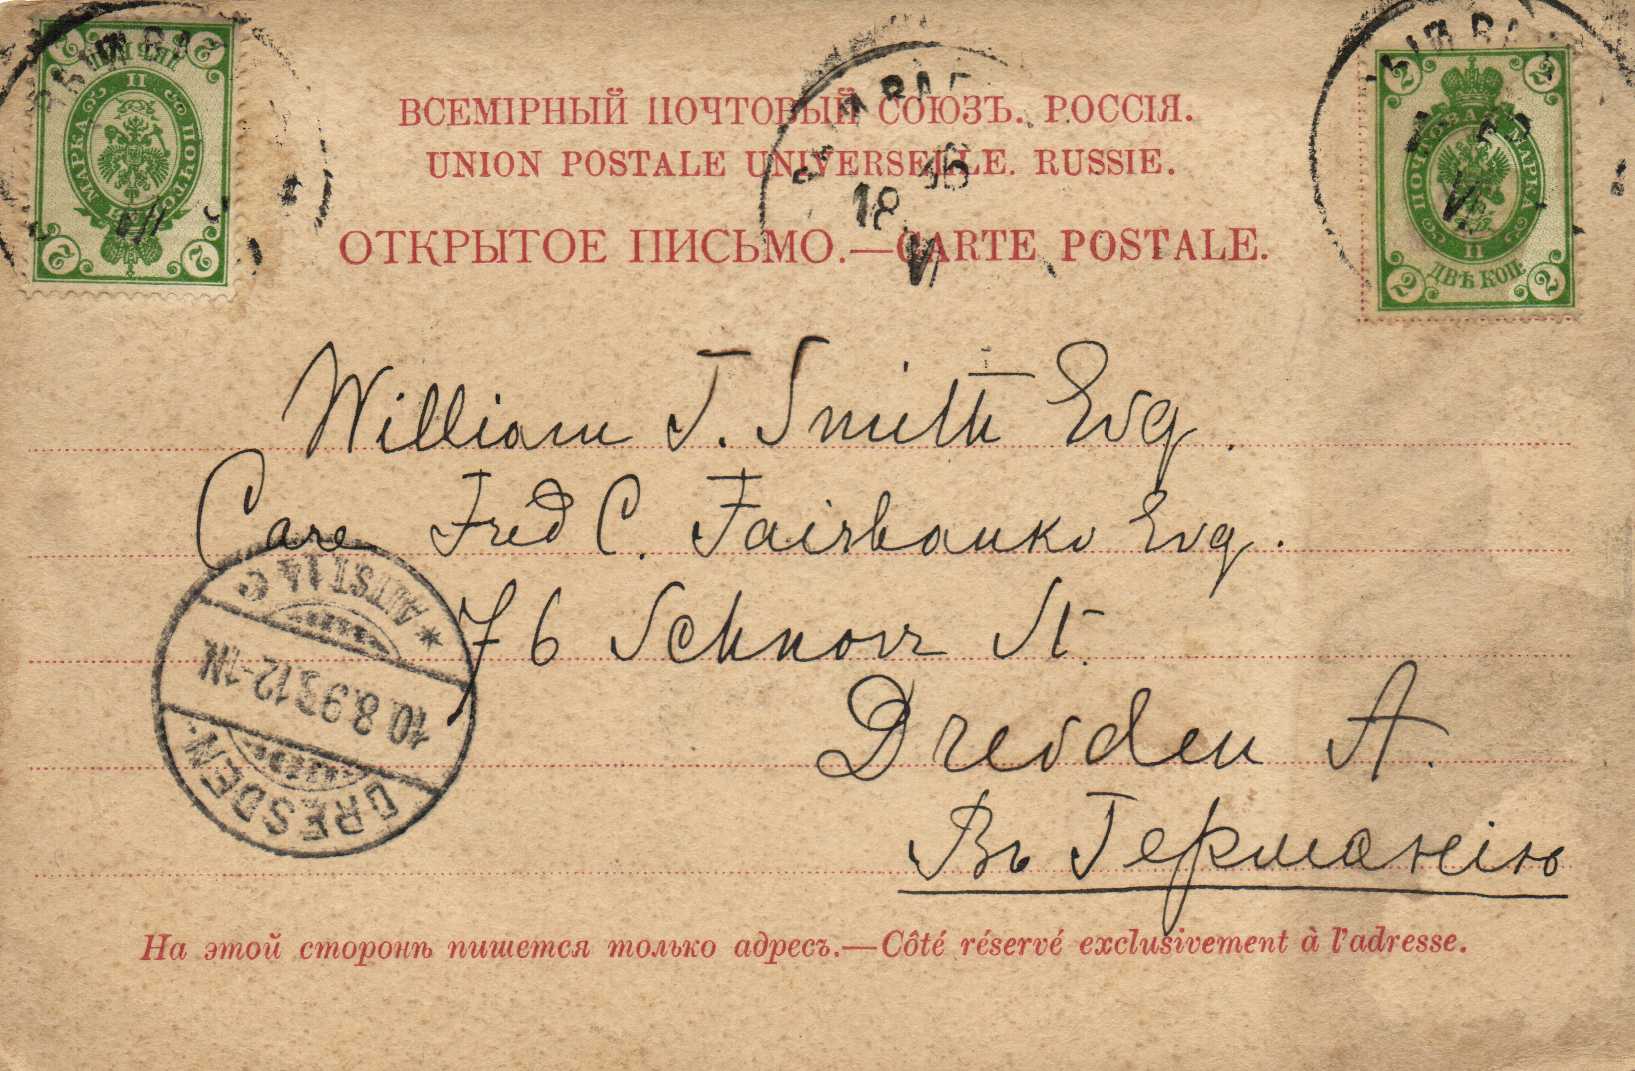 ВСЕМІРНЫЙ ПОЧТОВЫЙ СОЮЗЪ. РОССІЯ.
UNION POSTALE UNIVERSELLE. RUSSIE.
ОТКРЫТОЕ ПИСЬМО.—CARTE POSTALE.
2 2 2 2
ПОЧТОВАЯ МАРКА
II
18
VI
2 2 2 2
ПОЧТОВАЯ МАРКА
II
ДВѢ КОП
William T. Smith Esq.
Care Fred C. Fairbanks Esq.
76 Schnorr St.
Dresden A.
Въ Германію
DRESDEN.
ALTST. 14 c
На этой сторонѣ пишется только адресъ.—Côté réservé exclusivement à l'adresse.